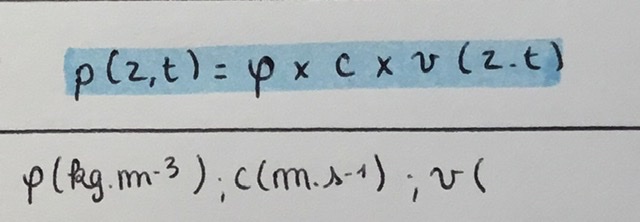 p(z,t) = φ × c × v(z.t)
φ(kg.m-3); c(m.s-1); v(